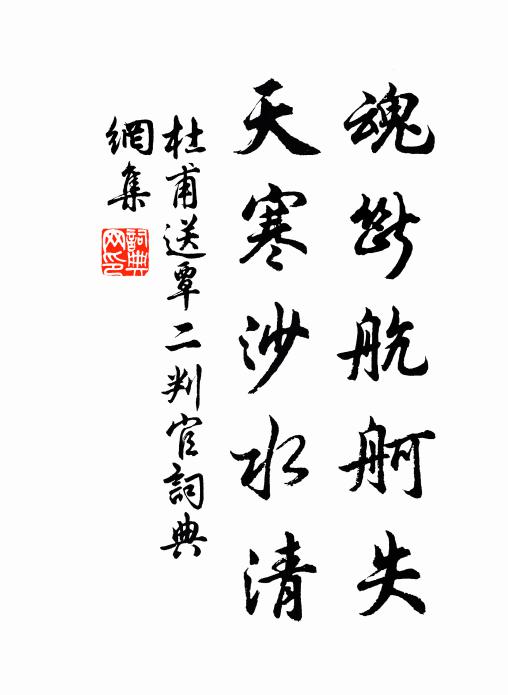 魂斷航舸失
天寒沙水清
杜甫送覃二判官詞典
網集
詞典
网印